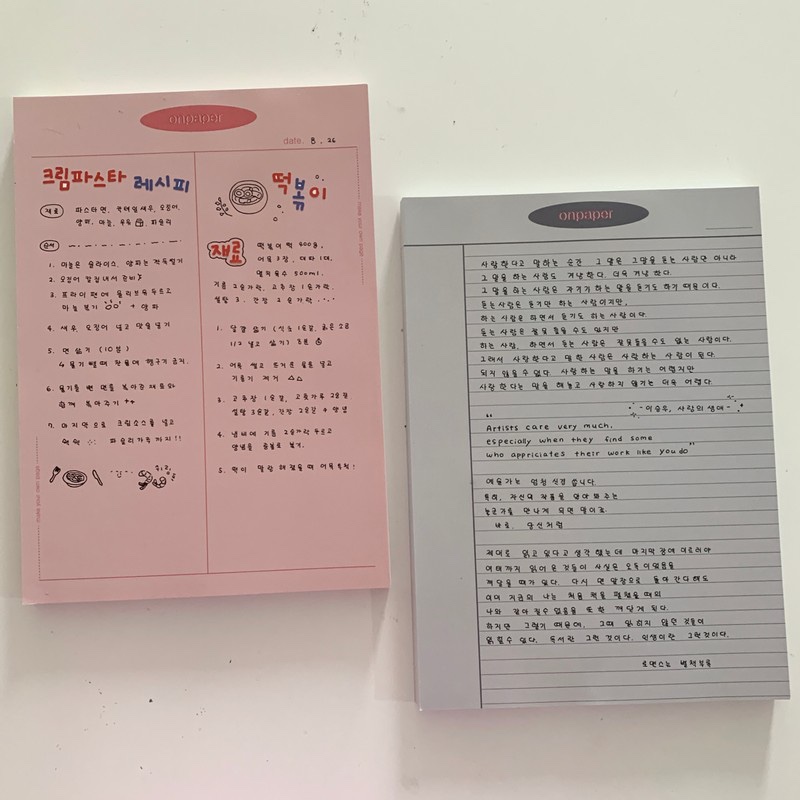 onpaper
date. 8. 26
크림파스타 레시피
재료 파스타면, 칵테일새우, 오징어,
양파, 마늘, 우유, 파슬리
순서
1. 마늘은 슬라이스, 양파는 깍둑썰기
2. 오징어 칼집내서 준비
3. 프라이팬에 올리브유 두르고
마늘 볶기 + 양파
4. 새우, 오징어 넣고 맛술 넣기
5. 면 삶기 (10분)
물기 뺄 때 찬물에 헹구기 금지.
6. 물기를 뺀 면을 볶아진 재료와
함께 볶아주기 ++
7. 마지막으로 크림소스를 넣고
파슬리가루까지!!
떡볶이
재료
떡볶이 떡 400g,
어묵 3장, 대파 1대,
멸치육수 500ml,
기름 2숟가락, 고추장 1숟가락,
설탕 3. 간장 2숟가락...
1. 달걀 삶기 (식초 1숟갈, 굵은소금
1/2 넣고 삶기)
2. 어묵 썰고 뜨거운 물을 넣고
기름기 제거
3. 고추장 1숟갈, 고춧가루 2숟갈
설탕 3숟갈, 간장 2숟갈 → 양념
4. 냄비에 기름 2숟가락 두르고
양념을 중불로 볶기.
5. 떡이 말랑해졌을 때 어묵투척!
onpaper
사랑한다고 말하는 순간 그 말은 그말을 듣는 사람만 아니라
그 말을 하는 사람도 겨냥한다. 더욱 겨냥한다.
그 말을 하는 사람은 자기가 하는 말을 듣기도 하기 때문이다.
듣는 사람은 듣기만 하는 사람이지만,
하는 사람은 하면서 듣기도 하는 사람이다.
듣는 사람은 잘못 들을 수도 있지만
하는 사람, 하면서 듣는 사람은 잘못들을 수도 없는 사람이다.
그래서 사랑한다고 말한 사람은 사랑하는 사람이 된다.
되지 않을 수 없다. 사랑하는 말을 하기는 어렵지만
사랑한다는 말을 해놓고 사랑하지 않기는 더욱 어렵다.
- 이승우, 사랑의 생애 -
“
Artists care very much,
especially when they find some
who appriciates their work like you do”
예술가는 엄청 신경 씁니다.
특히, 자신의 작품을 알아봐주는
누군가를 만나게 되면 말이죠.
바로, 당신처럼
제대로 읽고 있다고 생각했는데 마지막 장에 이르러야
여태까지 읽어온 것들이 사실은 오독이었음을
깨달을 때가 있다. 다시 맨 앞장으로 돌아간다해도
이미 지금의 나는 처음 책을 펼쳤을 때의
나와 같아질 수 없음을 또한 깨닫게 된다.
하지만 그렇기 때문에, 그때 읽히지 않던 것들이
읽힐 수 있다. 독서란 그런 것이다. 인생이란 그런것이다.
로맨스는 별책부록